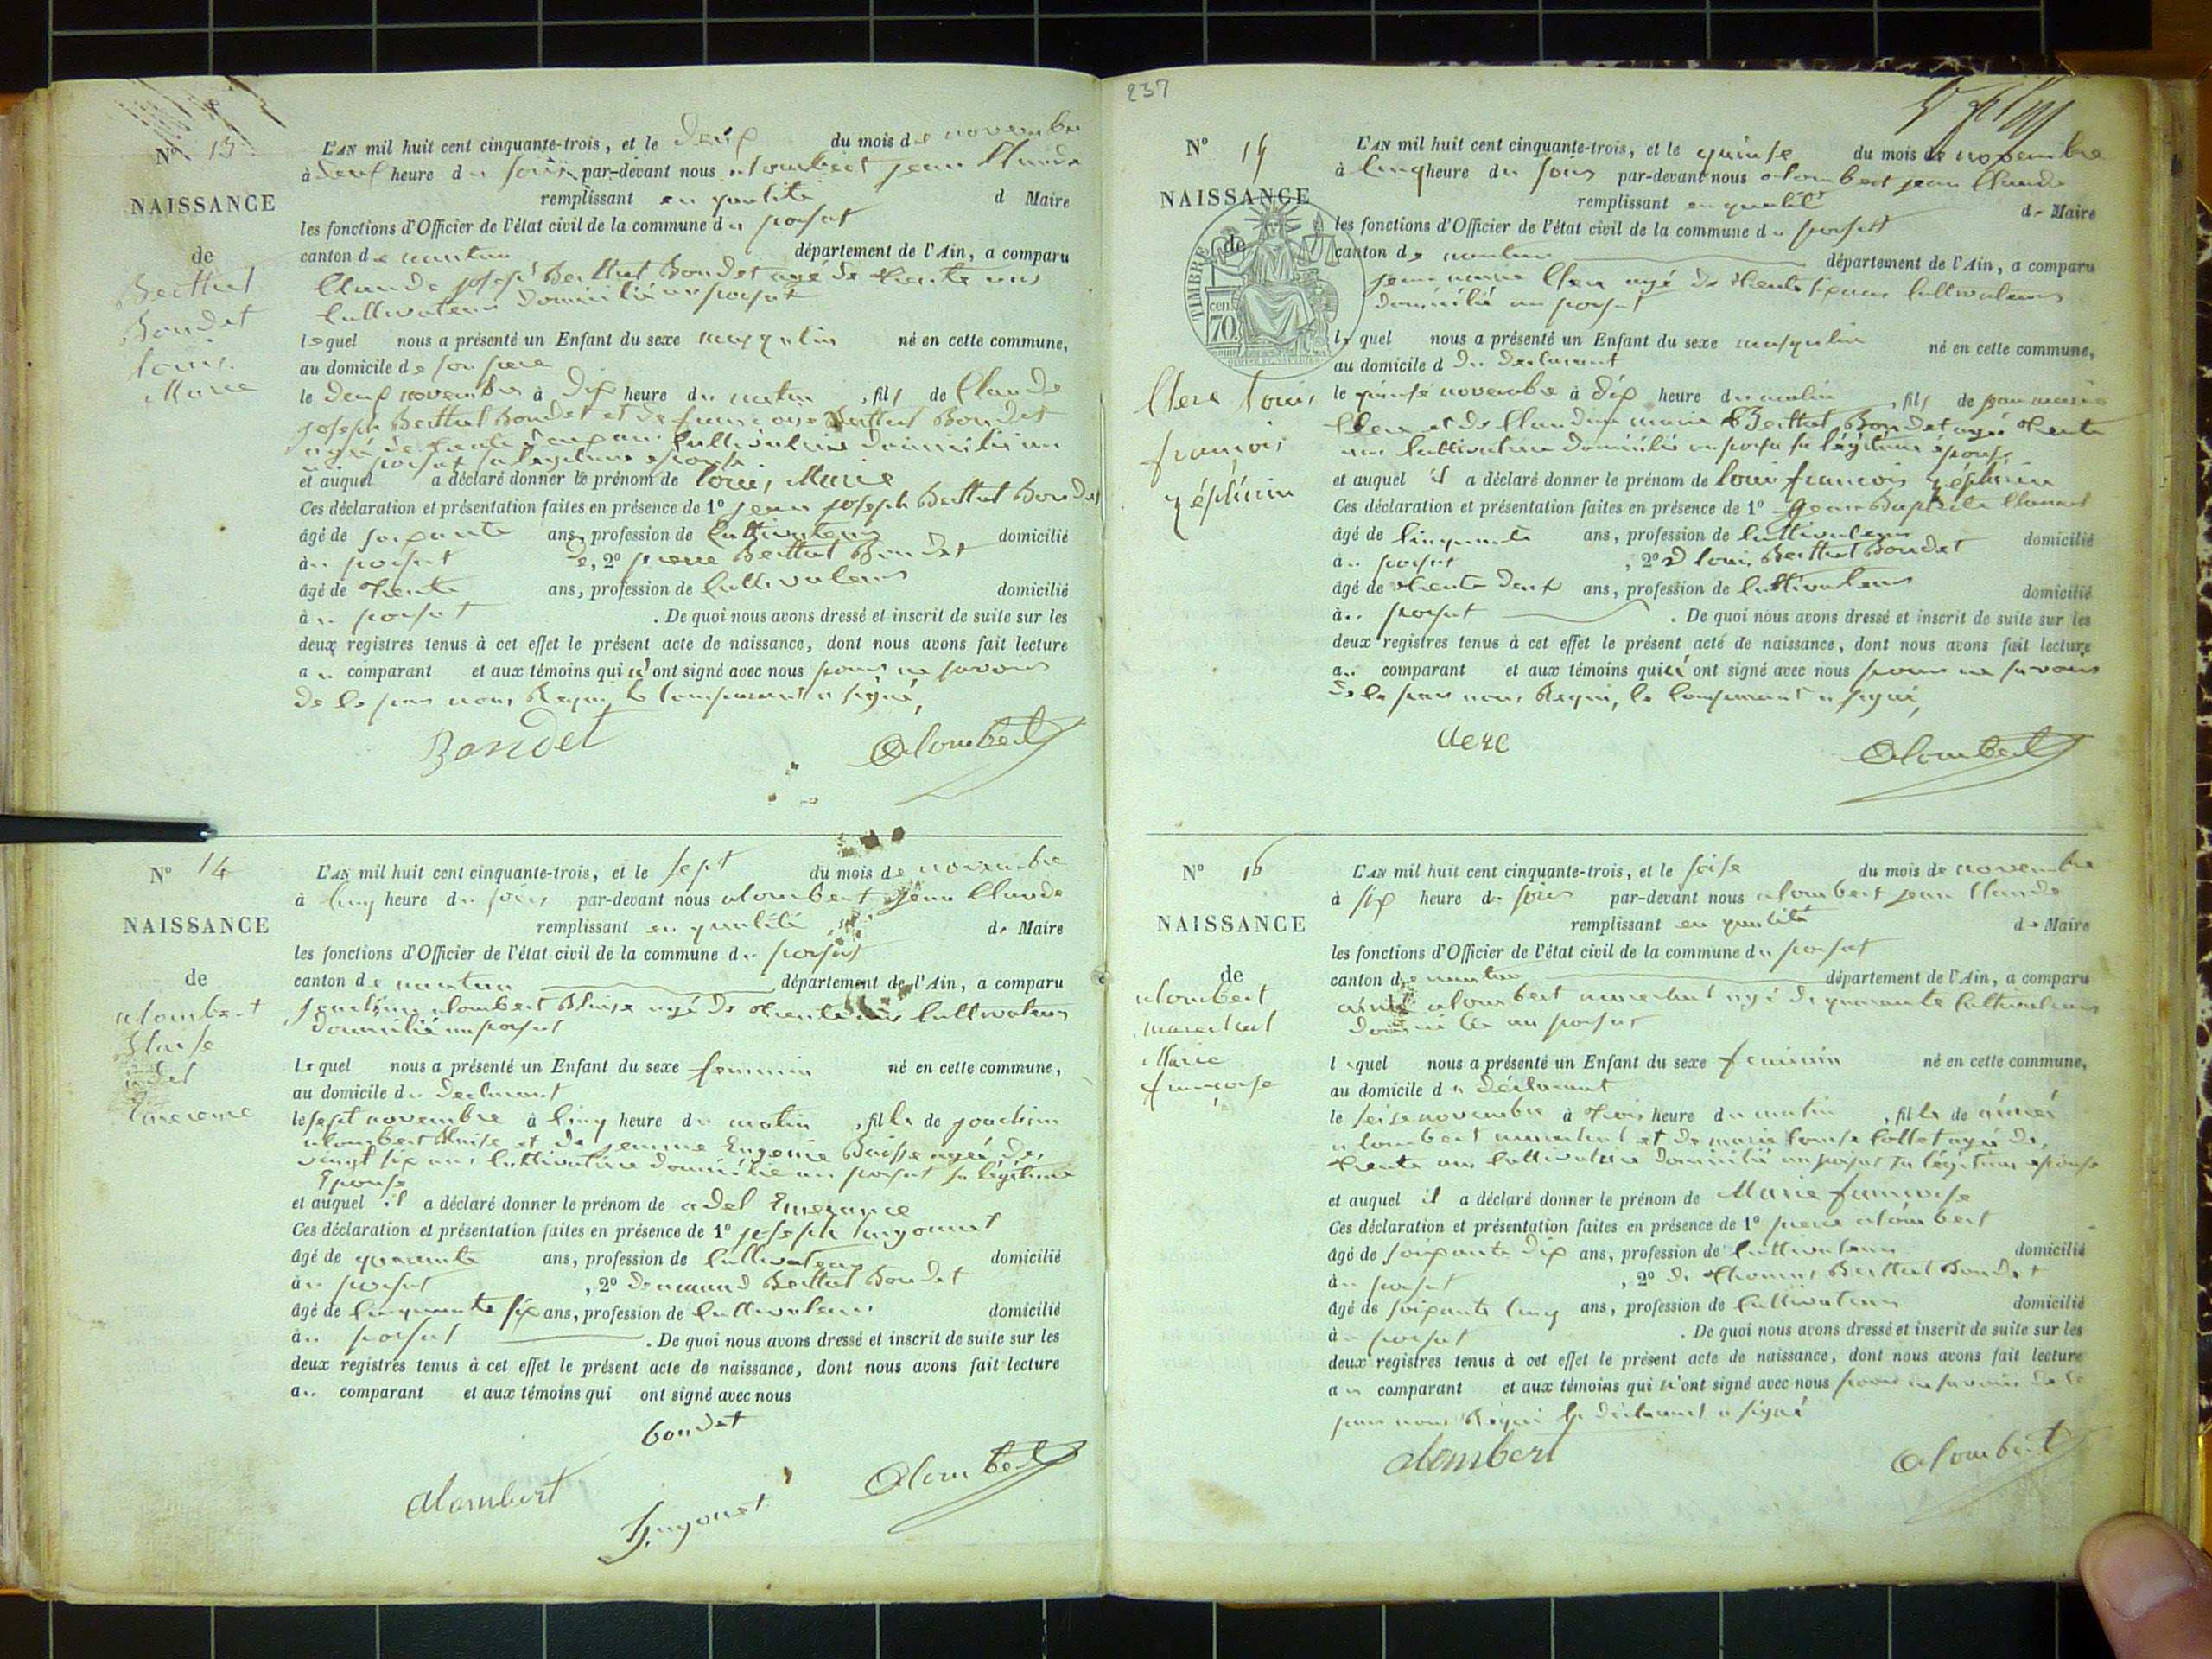 N° 13
NAISSANCE
de
Berthet
Boudet
louis
Marie
L'AN mil huit cent cinquante-trois, et le deux du mois de novembre
à heure du soir par-devant nous alombert jean Claude
remplissant en qualité d Maire
les fonctions d'Officier de l'état civil de la commune du poisat
canton de nantua département de l'Ain, a comparu
Claude joseph Berthet Boudet agé de trente ans
Cultivateur domicilié au poisat
lequel nous a présenté un Enfant du sexe masqulin né en cette commune,
au domicile de son père
le deux novembre à dix heure du matin, fils de Claude
joseph Berthet Boudet et de françoise Berthet Boudet
agé de trente ans Cultivatrice domicilié au
poisat sa legitime epouse
et auquel a déclaré donner le prénom de louis Marie
Ces déclaration et présentation faites en présence de 1° jean joseph Berthet Boudet
âgé de soixante ans, profession de Cultivateur domicilié
au poisat de, 2° pierre Berthet Boudet
âgé de trente ans, profession de Cultivateur domicilié
au poisat . De quoi nous avons dressé et inscrit de suite sur les
deux registres tenus à cet effet le présent acte de naissance, dont nous avons fait lecture
au comparant et aux témoins qui n'ont signé avec nous pour ne savoir
de le par nous Requi le Comparant a signé,
Boudet Alombert
N° 14
NAISSANCE
de
alombert
Blaise
adel
Emerance
L'AN mil huit cent cinquante-trois, et le sept du mois de novembre
à Cinq heure du soir par-devant nous alombert jean Claude
remplissant en qualité de Maire
les fonctions d'Officier de l'état civil de la commune du poisat
canton de nantua département de l'Ain, a comparu
joachim alombert Blaise agé de trente Cultivateur
domicilié au poisat
lequel nous a présenté un Enfant du sexe feminin né en cette commune,
au domicile du declarant
le sept novembre à Cinq heure du matin, fille de joachim
alombert Blaise et de jeanne Eugenie Buisse agée de
vingt six ans Cultivatrice domicilié au poisat sa légitime
Epouse
et auquel il a déclaré donner le prénom de adel Emerance
Ces déclaration et présentation faites en présence de 1° joseph hugonnet
âgé de quarante ans, profession de Cultivateur domicilié
au poisat, 2° de Berthet Boudet
âgé de Cinquante six ans, profession de Cultivateur domicilié
au poisat . De quoi nous avons dressé et inscrit de suite sur les
deux registres tenus à cet effet le présent acte de naissance, dont nous avons fait lecture
au comparant et aux témoins qui ont signé avec nous
boudet
alombert Hugonet Alombert
237
N° 15
NAISSANCE
de
TIMBRE
70 cen
Clerc louis
françois
zéphirin
L'AN mil huit cent cinquante-trois, et le quinse du mois de novembre
à Cinq heure du soir par-devant nous alombert jean Claude
remplissant en qualité de Maire
les fonctions d'Officier de l'état civil de la commune du poisat
canton de nantua département de l'Ain, a comparu
jean marie Clerc agé de trente six ans Cultivateur
domicilié au poisat
lequel nous a présenté un Enfant du sexe masqulin né en cette commune,
au domicile d du declarant
le quinse novembre à dix heure du matin, fils de jean marie
Clerc et de Claudine marie Berthet Boudet agée trente
ans Cultivatrice domicilié au poisat sa légitime épouse
et auquel il a déclaré donner le prénom de louis françois zéphirin
Ces déclaration et présentation faites en présence de 1° jean Baptiste
âgé de Cinquante ans, profession de Cultivateur domicilié
au poisat, 2° louis Berthet Boudet
âgé de trente deux ans, profession de Cultivateur domicilié
au poisat . De quoi nous avons dressé et inscrit de suite sur les
deux registres tenus à cet effet le présent acte de naissance, dont nous avons fait lecture
au comparant et aux témoins qui n'ont signé avec nous pour ne savoir
de le par nous Requi, le Comparant a signé,
clerc Alombert
N° 16
NAISSANCE
de
alombert
marechal
Marie
françoise
L'AN mil huit cent cinquante-trois, et le seise du mois de novembre
à six heure du soir par-devant nous alombert jean Claude
remplissant en qualité de Maire
les fonctions d'Officier de l'état civil de la commune du poisat
canton de nantua département de l'Ain, a comparu
aimé alombert marechal agé de quarante Cultivateur
domicilié au poisat
lequel nous a présenté un Enfant du sexe feminin né en cette commune,
au domicile du déclarant
le seise novembre à trois heure du matin, fille de aimé
alombert marechal et de marie louise Collet agée de
trente ans Cultivatrice domicilié au poisat sa légitime épouse
et auquel il a déclaré donner le prénom de Marie françoise
Ces déclaration et présentation faites en présence de 1° pierre alombert
âgé de soixante dix ans, profession de Cultivateur domicilié
au poisat, 2° de thomas Berthet Boudet
âgé de soixante Cinq ans, profession de Cultivateur domicilié
au poisat . De quoi nous avons dressé et inscrit de suite sur les
deux registres tenus à cet effet le présent acte de naissance, dont nous avons fait lecture
au comparant et aux témoins qui n'ont signé avec nous pour ne savoir de le
par nous Requi le déclarant a signé
alombert Alombert